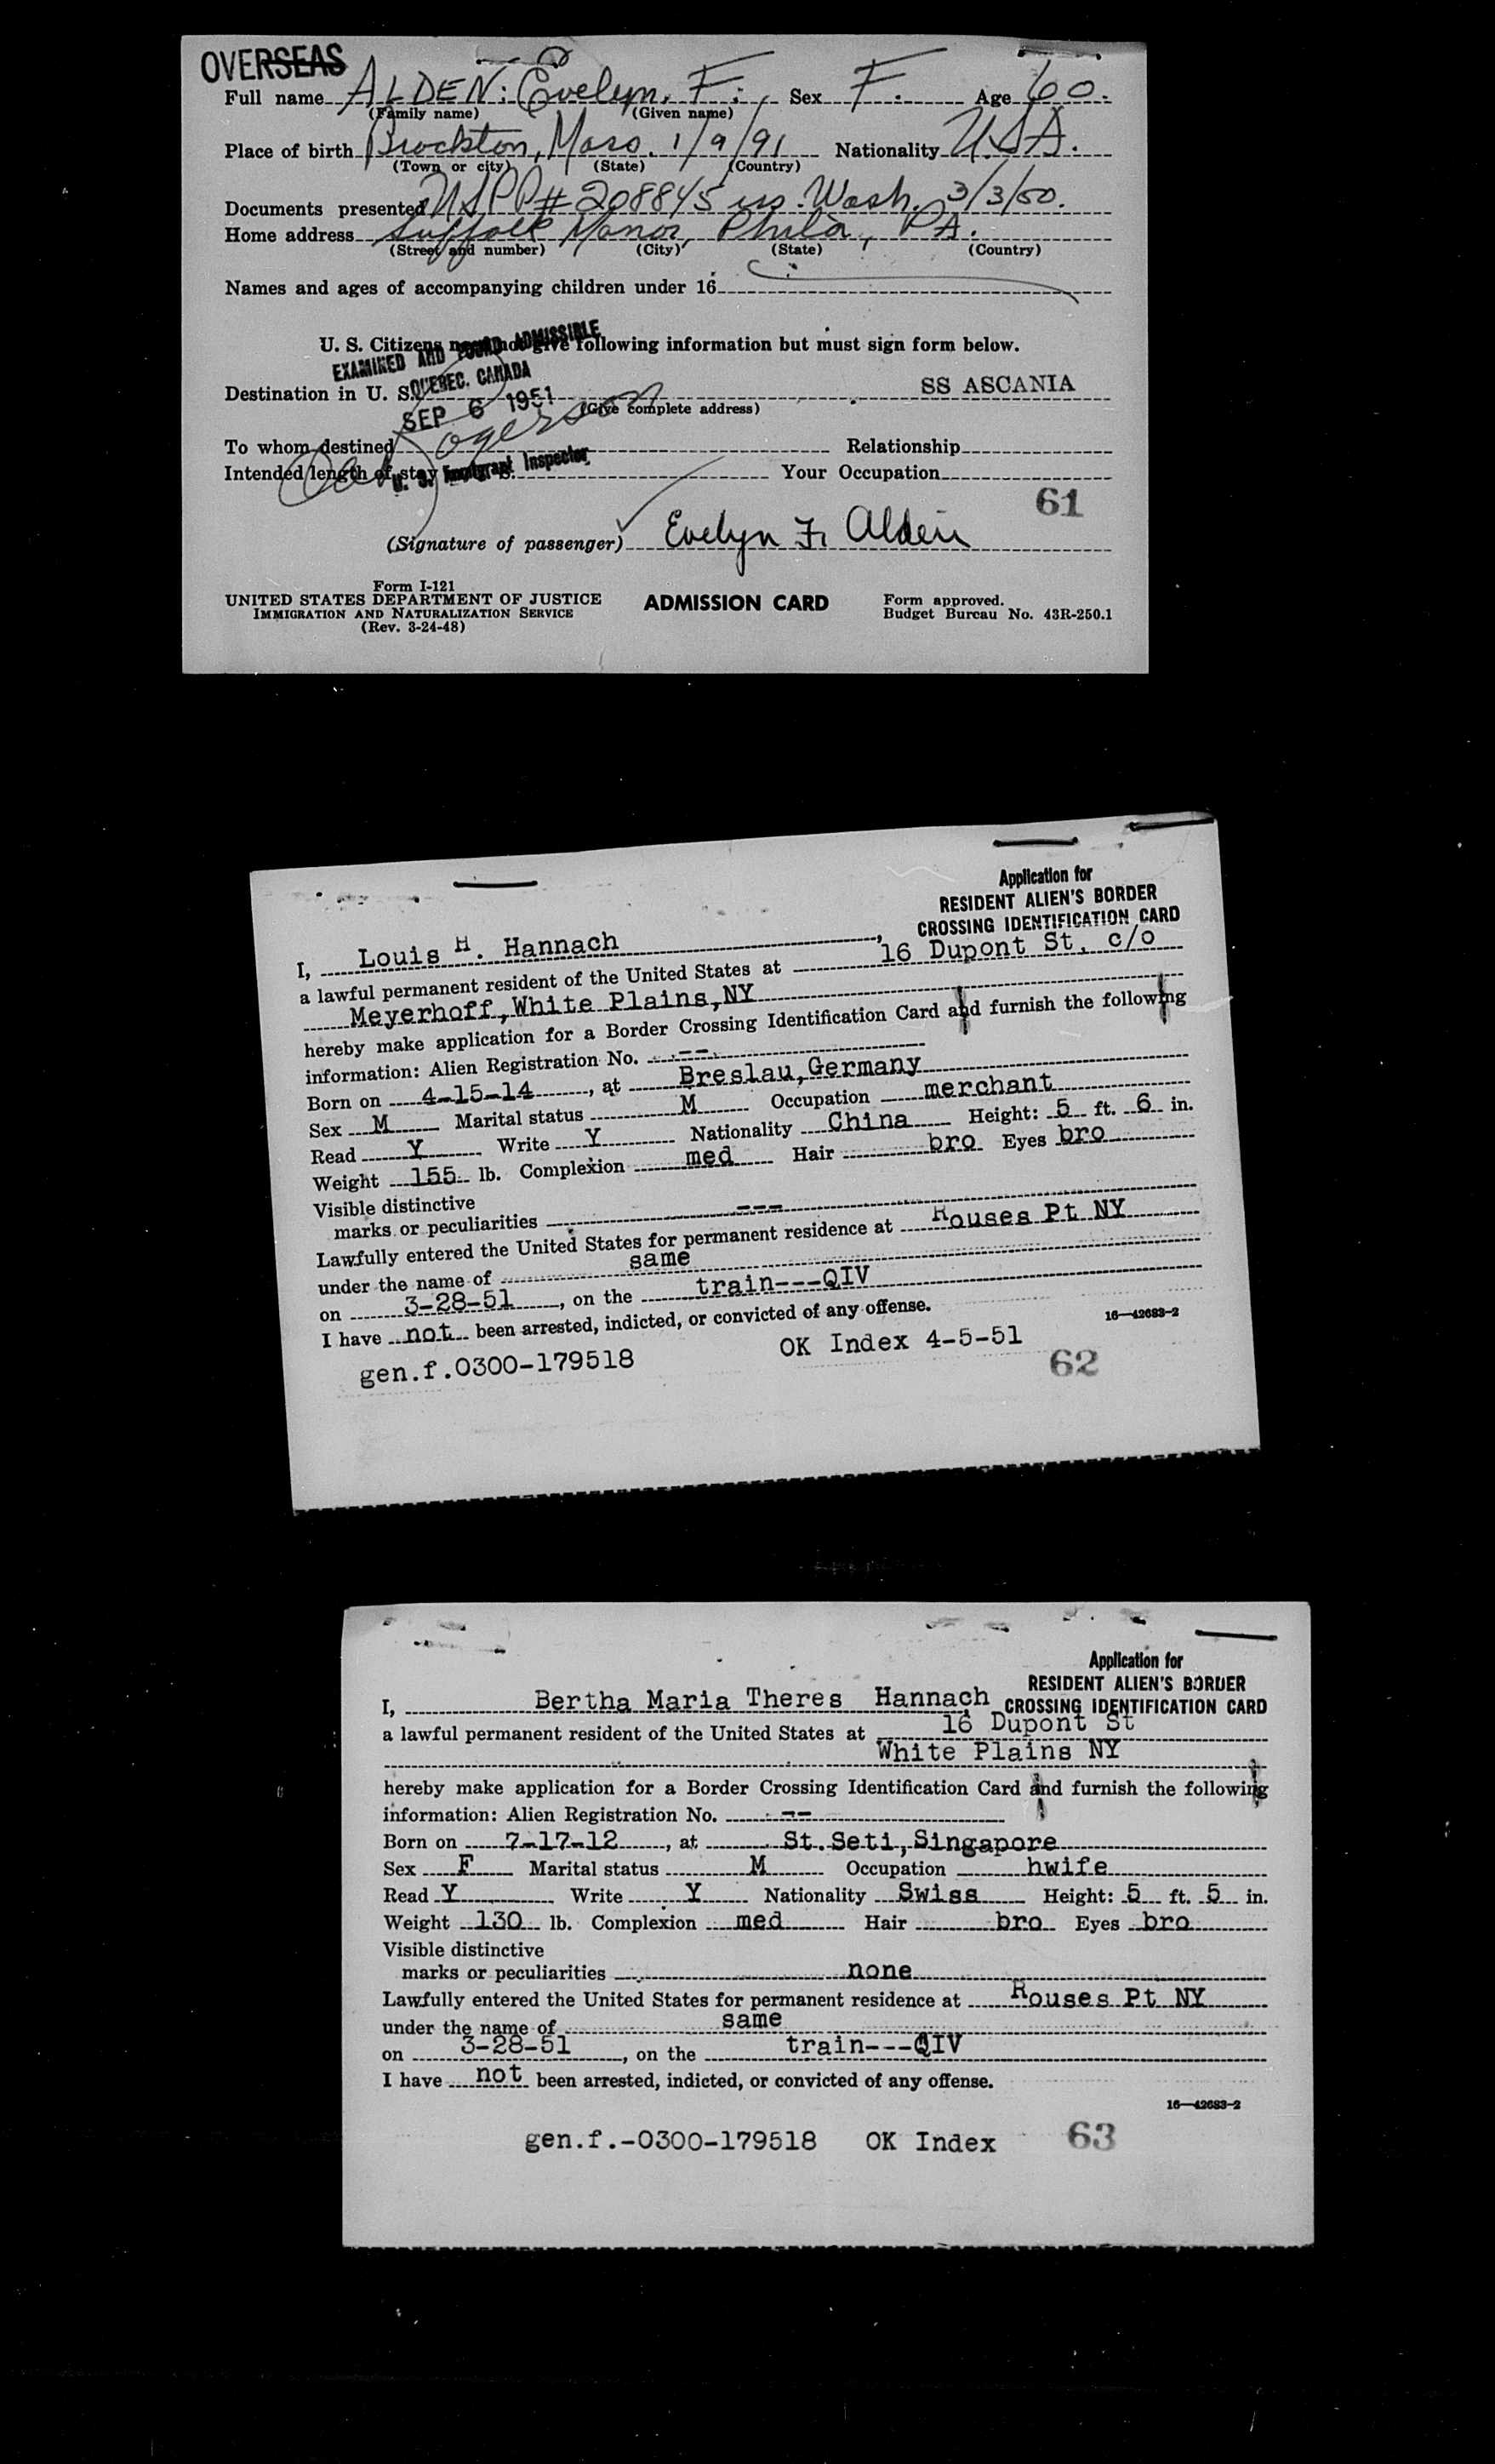 OVERSEAS
Full name ALDEN: Evelyn. F. Sex F. Age 60.
(Family name) (Given name)
Place of birth Brockton, Mass. 1/9/91 Nationality U.S.A.
(Town or city) (State) (Country)
Documents presented USPP# 208845 iss. Wash. 3/3/50.
Home address Suffolk Manor, Phila, PA.
(Street and number) (City) (State) (Country)
Names and ages of accompanying children under 16
U. S. Citizens need not give following information but must sign form below.
EXAMINED AND FOUND ADMISSIBLE
QUEBEC. CANADA
Destination in U. S. SS ASCANIA
SEP 6 1951
(Give complete address)
To whom destined Relationship
Intended length of stay Your Occupation
U. S. Immigrant Inspector
61
(Signature of passenger) Evelyn F. Alden
Form I-121
UNITED STATES DEPARTMENT OF JUSTICE
IMMIGRATION AND NATURALIZATION SERVICE
(Rev. 3-24-48)
ADMISSION CARD
Form approved.
Budget Bureau No. 43R-250.1
Application for
RESIDENT ALIEN'S BORDER
CROSSING IDENTIFICATION CARD
I, Louis H. Hannach,
a lawful permanent resident of the United States at 16 Dupont St, c/o
Meyerhoff,White Plains,NY
hereby make application for a Border Crossing Identification Card and furnish the following
information: Alien Registration No. --
Born on 4-15-14, at Breslau,Germany
Sex M Marital status M Occupation merchant
Read Y Write Y Nationality China Height: 5 ft. 6 in.
Weight 155 lb. Complexion med Hair bro Eyes bro
Visible distinctive
marks or peculiarities ---
Lawfully entered the United States for permanent residence at Rouses Pt NY
under the name of same
on 3-28-51, on the train---QIV
I have not been arrested, indicted, or convicted of any offense.
16—42683-2
gen.f.0300-179518 OK Index 4-5-51
62
Application for
RESIDENT ALIEN'S BORDER
CROSSING IDENTIFICATION CARD
I, Bertha Maria Theres Hannach
a lawful permanent resident of the United States at 16 Dupont St
White Plains NY
hereby make application for a Border Crossing Identification Card and furnish the following
information: Alien Registration No. --
Born on 7-17-12, at St.Seti,Singapore
Sex F Marital status M Occupation hwife
Read Y Write Y Nationality Swiss Height: 5 ft. 5 in.
Weight 130 lb. Complexion med Hair bro Eyes bro
Visible distinctive
marks or peculiarities none
Lawfully entered the United States for permanent residence at Rouses Pt NY
under the name of same
on 3-28-51, on the train---QIV
I have not been arrested, indicted, or convicted of any offense.
16—42683-2
gen.f.-0300-179518 OK Index 63